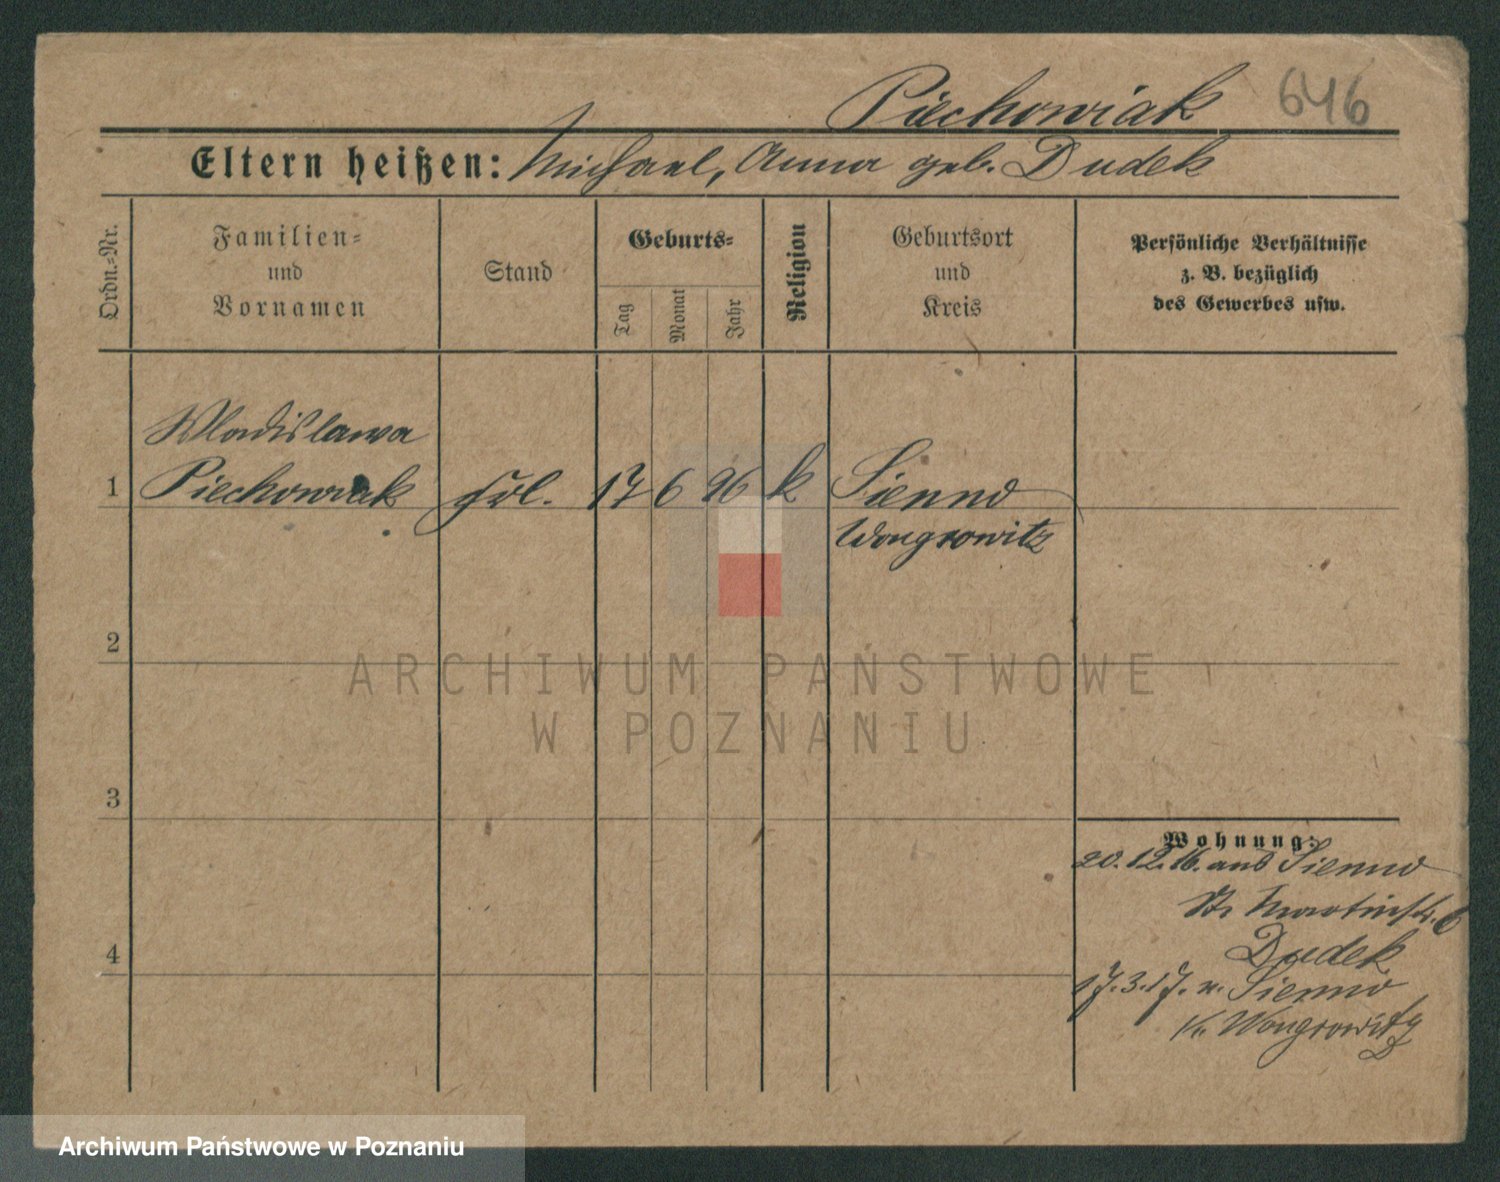 Piechowiak 646
Eltern heißen: Michael, Anna geb. Dudek
Ordn.-Nr.
Familien-
und
Vornamen
Stand
Geburts-
Tag
Monat
Jahr
Religion
Geburtsort
und
Kreis
Persönliche Verhältnisse
z. B. bezüglich
des Gewerbes usw.
Wladislawa
1 Piechowiak frl. 17 6 96 k Sienno
Wongrowitz
2
3
4
Wohnung:
20.12.16. aus Sienno
St. Martinstr. 6
Dudek
17.3.17. n. Sienno
Kr. Wongrowitz
ARCHIWUM PAŃSTWOWE
W POZNANIU
Archiwum Państwowe w Poznaniu